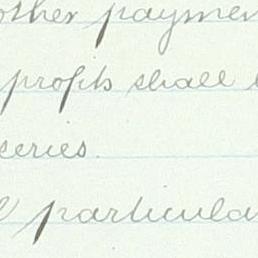 other paymen
profits shall
series.
particular